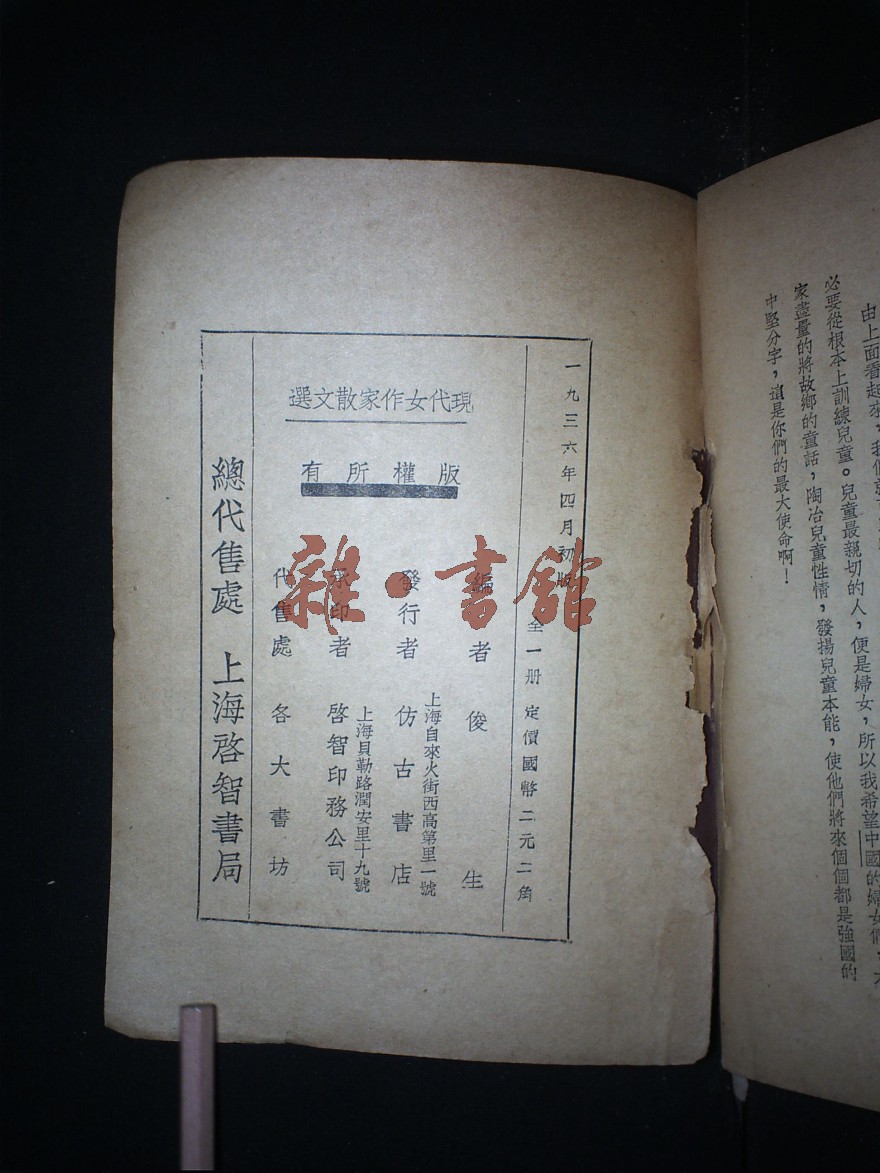 由上面看起來，我們
必要從根本上訓練兒童。兒童最親切的人，便是婦女，所以我希望中國的婦女們，大
家盡量的將故鄉的童話，陶冶兒童性情，發揚兒童本能，使他們將來個個都是強國的
中堅分字，這是你們的最大使命啊！
一九三六年四月初版
全一册 定價國幣二元二角
現代女作家散文選
版權所有
編者 俊生
上海自來火街西高第里一號
發行者 仿古書店
上海貝勒路潤安里十九號
承印者 啓智印務公司
代售處 各大書坊
總代售處 上海啓智書局
雜·書館